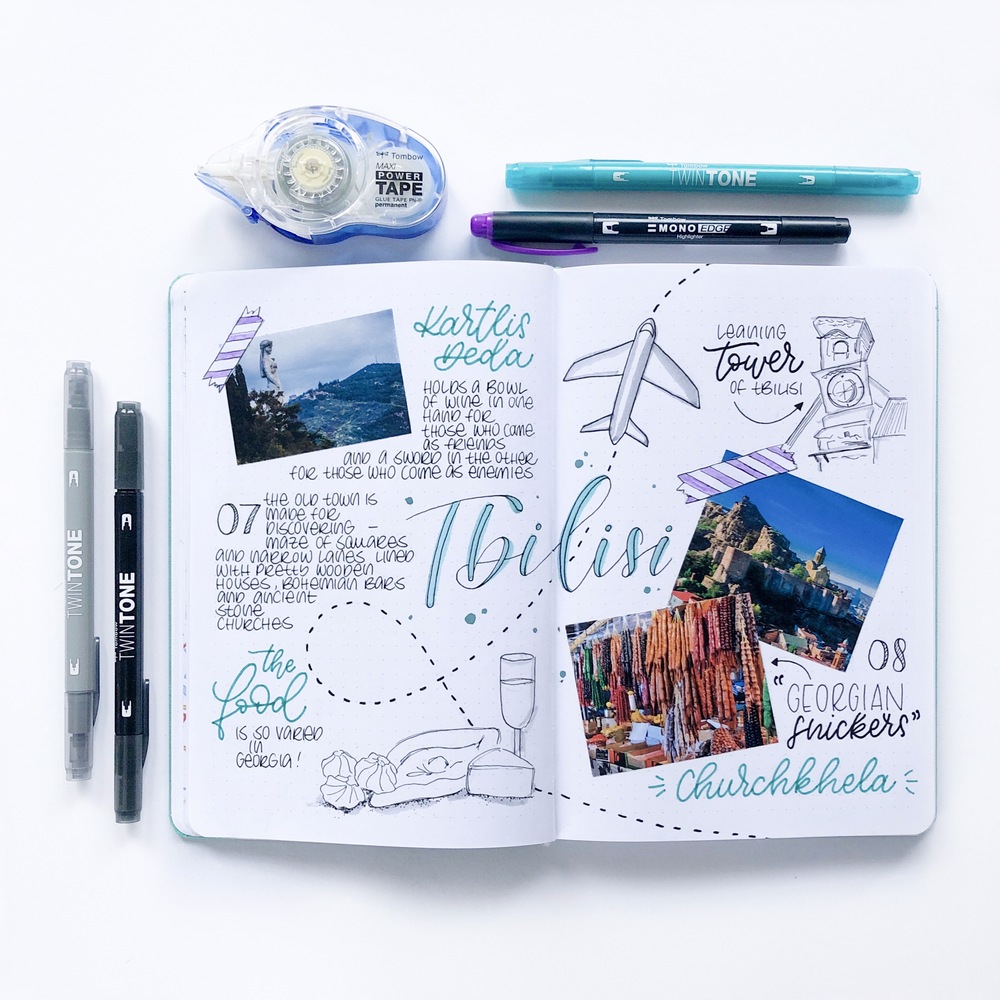 Tombow
MAXI
POWER
TAPE
GLUE TAPE
permanent
Tombow
TWINTONE
Tombow
MONO EDGE
Highlighter
TWINTONE
TWINTONE
Kartlis
Deda
HOLDS A BOWL
OF WINE IN ONE
HAND FOR
THOSE WHO COME
AS FRIENDS
AND A SWORD IN THE OTHER
FOR THOSE WHO COME AS ENEMIES
07
THE OLD TOWN IS
MADE FOR
DISCOVERING –
MAZE OF SQUARES
AND NARROW LANES LINED
WITH PRETTY WOODEN
HOUSES, BOHEMIAN BARS
AND ANCIENT
STONE
CHURCHES
the
food
IS SO VARIED
IN
GEORGIA!
Tbilisi
LEANING
Tower
OF TBILISI
08
"GEORGIAN
Snickers"
Churchkhela